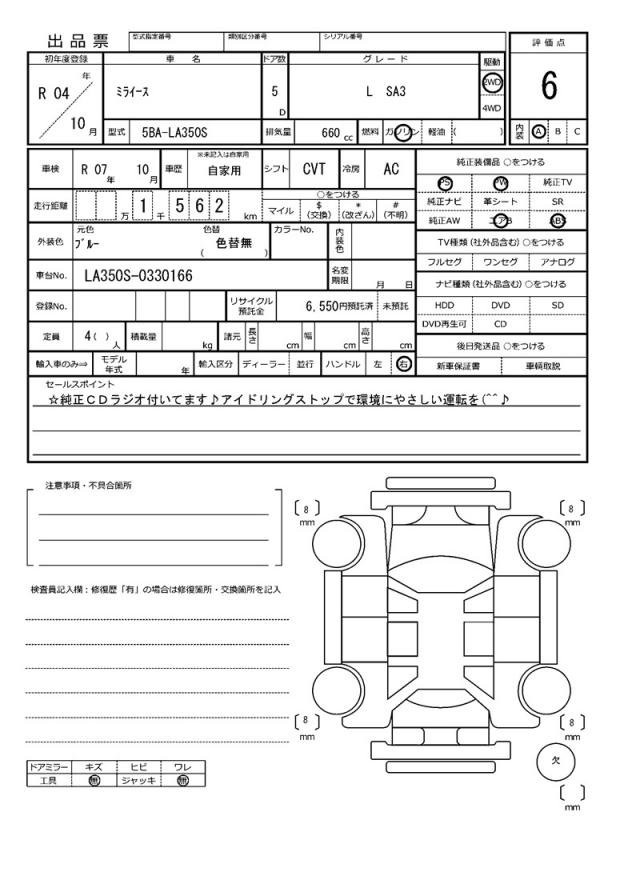 出品票
型式指定番号 類別区分番号 シリアル番号
評価点
初年度登録 車名 ドア数 グレード 駆動
R 04 年 10 月
ﾐﾗｲｰｽ
5 D
L SA3
2WD
4WD
6
型式 5BA-LA350S 排気量 660 cc 燃料 ガソリン 軽油 ( )
内装 A B C
車検 R 07 年 10 月 車歴 ※未記入は自家用 自家用 シフト CVT 冷房 AC
純正装備品 ○をつける
PS PW 純正TV
純正ナビ 革シート SR
純正AW エアB ABS
走行距離 万 1 千 5 6 2 km
○をつける
マイル $(交換) *(改ざん) #(不明)
外装色 元色 ﾌﾞﾙｰ 色替 色替無 ( )
カラーNo. 内装色
TV種類 (社外品含む) ○をつける
フルセグ ワンセグ アナログ
車台No. LA350S-0330166 名変期限 月 日
ナビ種類 (社外品含む) ○をつける
HDD DVD SD
DVD再生可 CD
登録No. リサイクル預託金 6,550円預託済 未預託
定員 4( ) 人 積載量 kg 諸元 長さ cm 幅 cm 高さ cm
後日発送品 ○をつける
新車保証書 車輌取説
輸入車のみ⇒ モデル年式 年 輸入区分 ディーラー 並行 ハンドル 左 右
セールスポイント
☆純正ＣＤラジオ付いてます♪アイドリングストップで環境にやさしい運転を(^^♪
注意事項・不具合箇所
8 mm
8 mm
検査員記入欄：修復歴「有」の場合は修復箇所・交換箇所を記入
8 mm
8 mm
欠
mm
ドアミラー キズ ヒビ ワレ
工具 無 ジャッキ 無